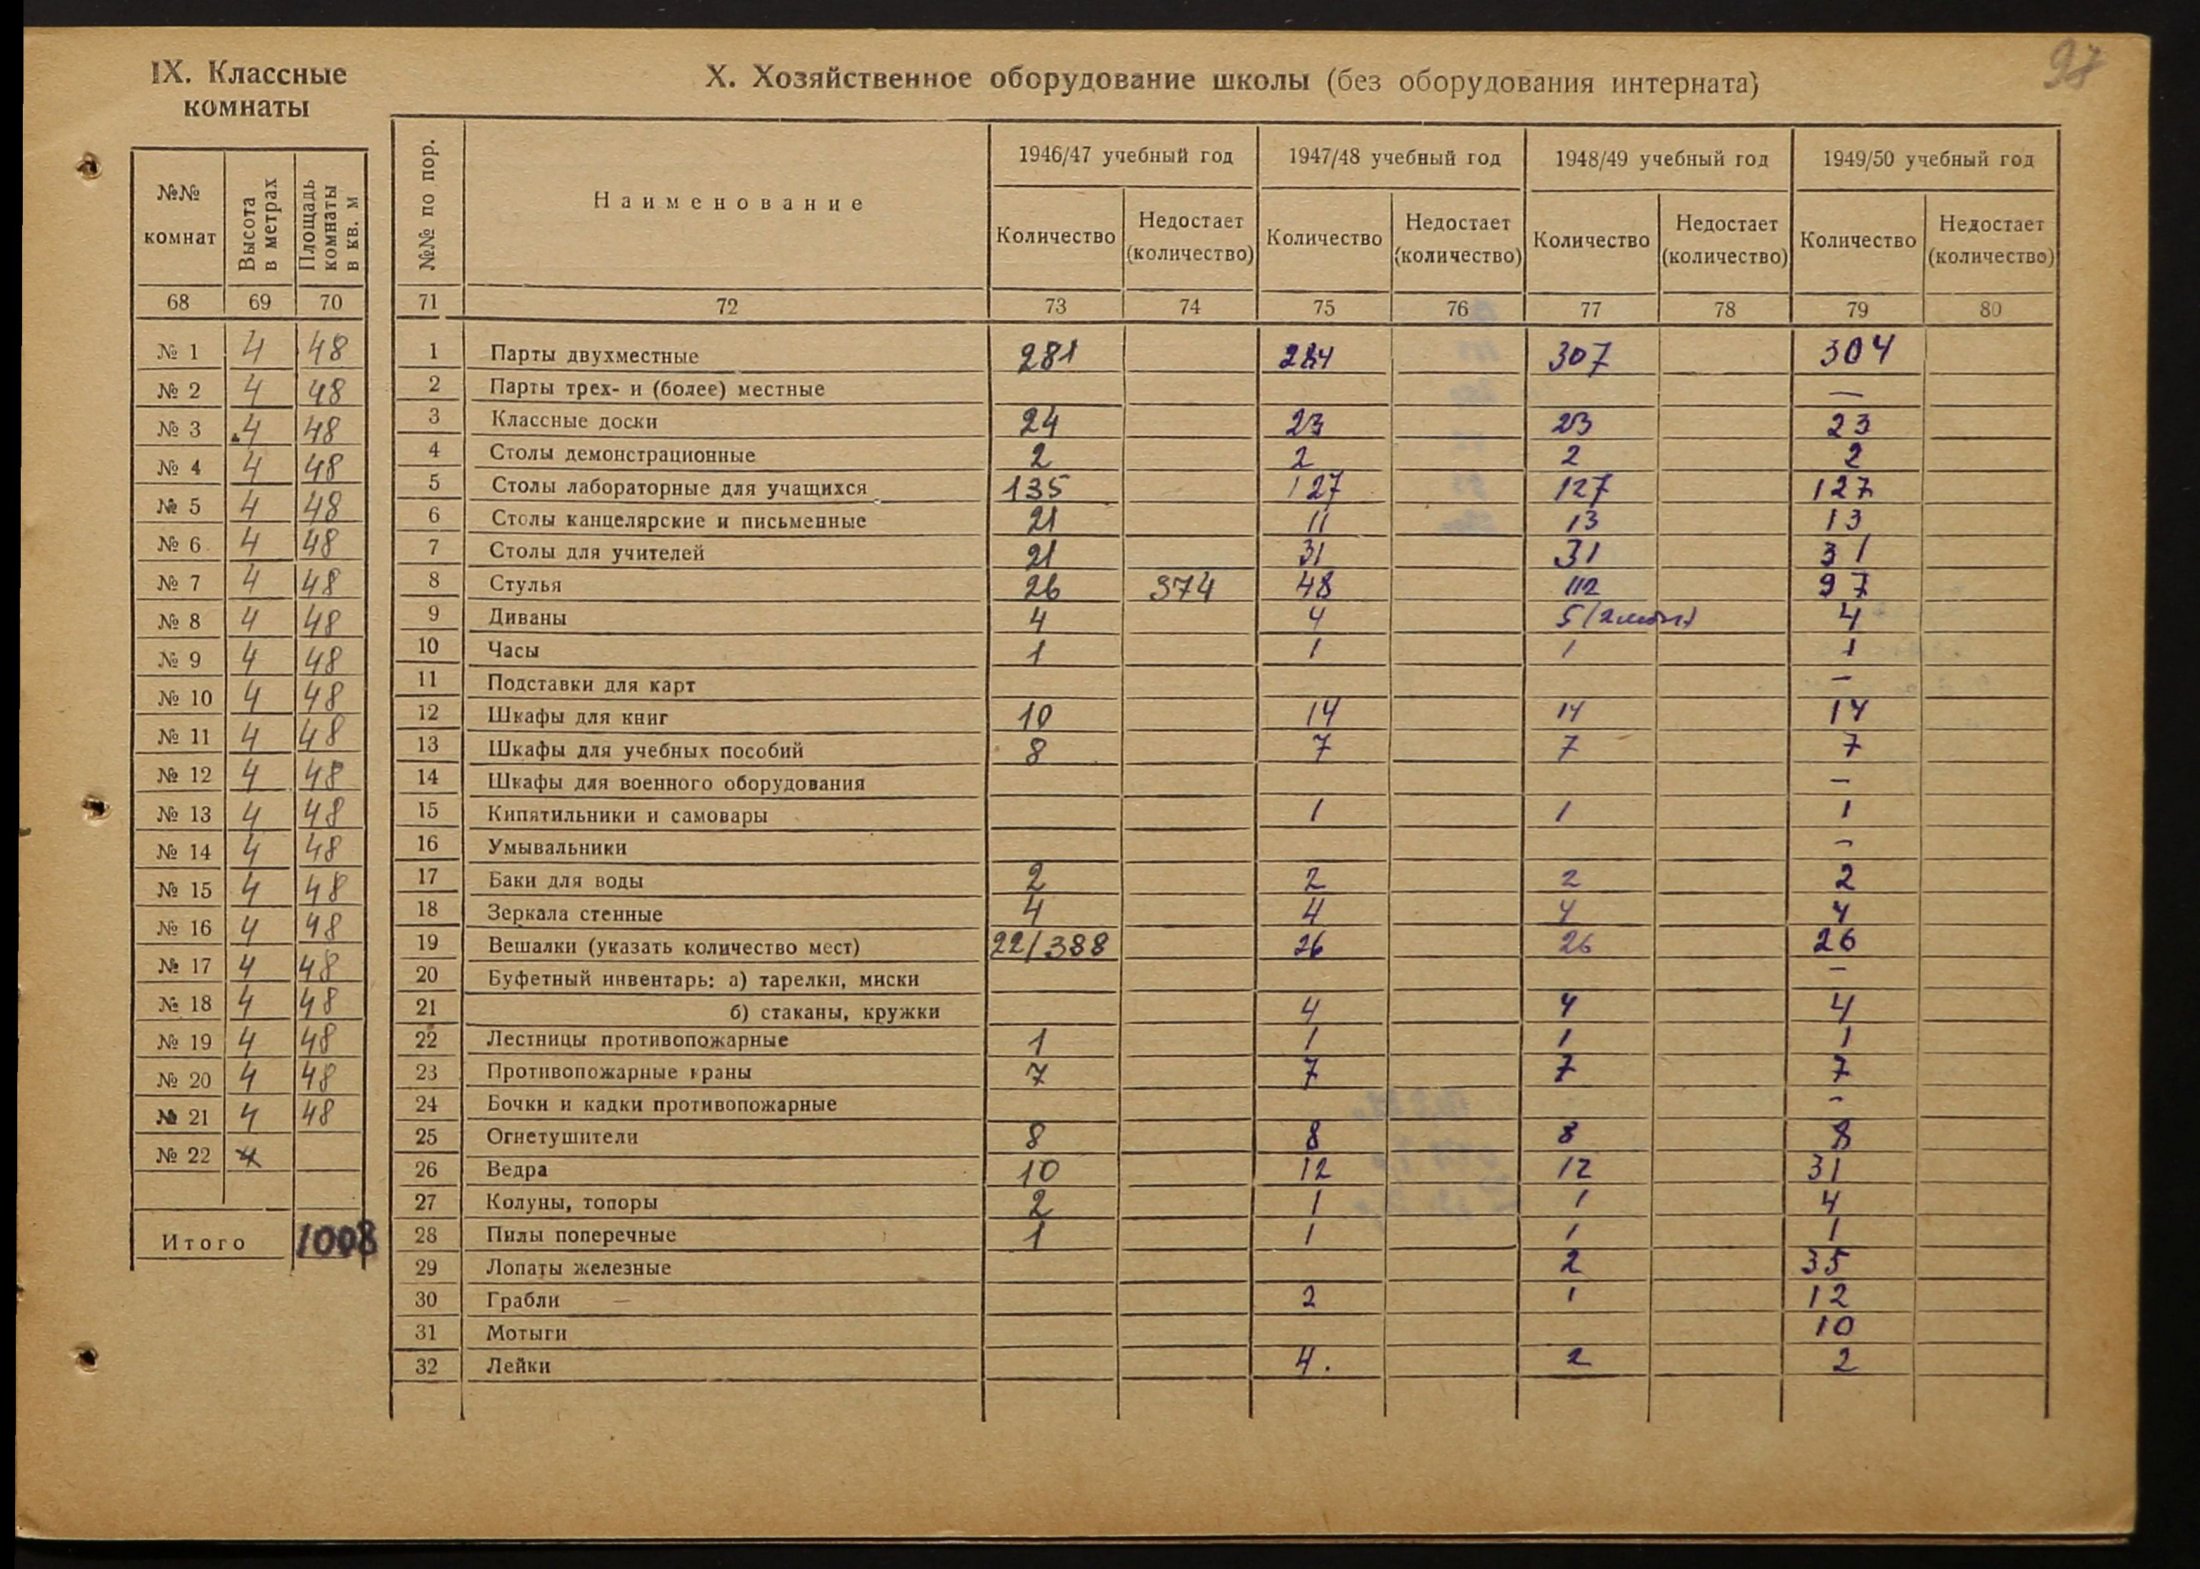 97
IX. Классные
комнаты
№№ комнат | Высота в метрах | Площадь комнаты в кв. м
68 | 69 | 70
№ 1 | 4 | 48
№ 2 | 4 | 48
№ 3 | 4 | 48
№ 4 | 4 | 48
№ 5 | 4 | 48
№ 6 | 4 | 48
№ 7 | 4 | 48
№ 8 | 4 | 48
№ 9 | 4 | 48
№ 10 | 4 | 48
№ 11 | 4 | 48
№ 12 | 4 | 48
№ 13 | 4 | 48
№ 14 | 4 | 48
№ 15 | 4 | 48
№ 16 | 4 | 48
№ 17 | 4 | 48
№ 18 | 4 | 48
№ 19 | 4 | 48
№ 20 | 4 | 48
№ 21 | 4 | 48
№ 22 | 4
Итого | 1008
X. Хозяйственное оборудование школы (без оборудования интерната)
№№ по пор. | Наименование | 1946/47 учебный год | 1947/48 учебный год | 1948/49 учебный год | 1949/50 учебный год
Количество | Недостает (количество) | Количество | Недостает (количество) | Количество | Недостает (количество) | Количество | Недостает (количество)
71 | 72 | 73 | 74 | 75 | 76 | 77 | 78 | 79 | 80
1 | Парты двухместные | 281 | | 284 | | 307 | | 304
2 | Парты трех- и (более) местные | | | | | | | —
3 | Классные доски | 24 | | 23 | | 23 | | 23
4 | Столы демонстрационные | 2 | | 2 | | 2 | | 2
5 | Столы лабораторные для учащихся | 135 | | 127 | | 127 | | 127
6 | Столы канцелярские и письменные | 21 | | 11 | | 13 | | 13
7 | Столы для учителей | 21 | | 31 | | 31 | | 31
8 | Стулья | 26 | 374 | 48 | | 112 | | 97
9 | Диваны | 4 | | 4 | | 5 | | 4
10 | Часы | 1 | | 1 | | 1 | | 1
11 | Подставки для карт | | | | | | | —
12 | Шкафы для книг | 10 | | 14 | | 14 | | 14
13 | Шкафы для учебных пособий | 8 | | 7 | | 7 | | 7
14 | Шкафы для военного оборудования | | | | | | | —
15 | Кипятильники и самовары | | | 1 | | 1 | | 1
16 | Умывальники | | | | | | | —
17 | Баки для воды | 2 | | 2 | | 2 | | 2
18 | Зеркала стенные | 4 | | 4 | | 4 | | 4
19 | Вешалки (указать количество мест) | 22/388 | | 26 | | 26 | | 26
20 | Буфетный инвентарь: а) тарелки, миски | | | | | | | —
21 | б) стаканы, кружки | | | 4 | | 4 | | 4
22 | Лестницы противопожарные | 1 | | 1 | | 1 | | 1
23 | Противопожарные краны | 7 | | 7 | | 7 | | 7
24 | Бочки и кадки противопожарные | | | | | | | —
25 | Огнетушители | 8 | | 8 | | 8 | | 8
26 | Ведра | 10 | | 12 | | 12 | | 31
27 | Колуны, топоры | 2 | | 1 | | 1 | | 4
28 | Пилы поперечные | 1 | | 1 | | 1 | | 1
29 | Лопаты железные | | | | | 2 | | 35
30 | Грабли | | | 2 | | 1 | | 12
31 | Мотыги | | | | | | | 10
32 | Лейки | | | 4. | | 2 | | 2